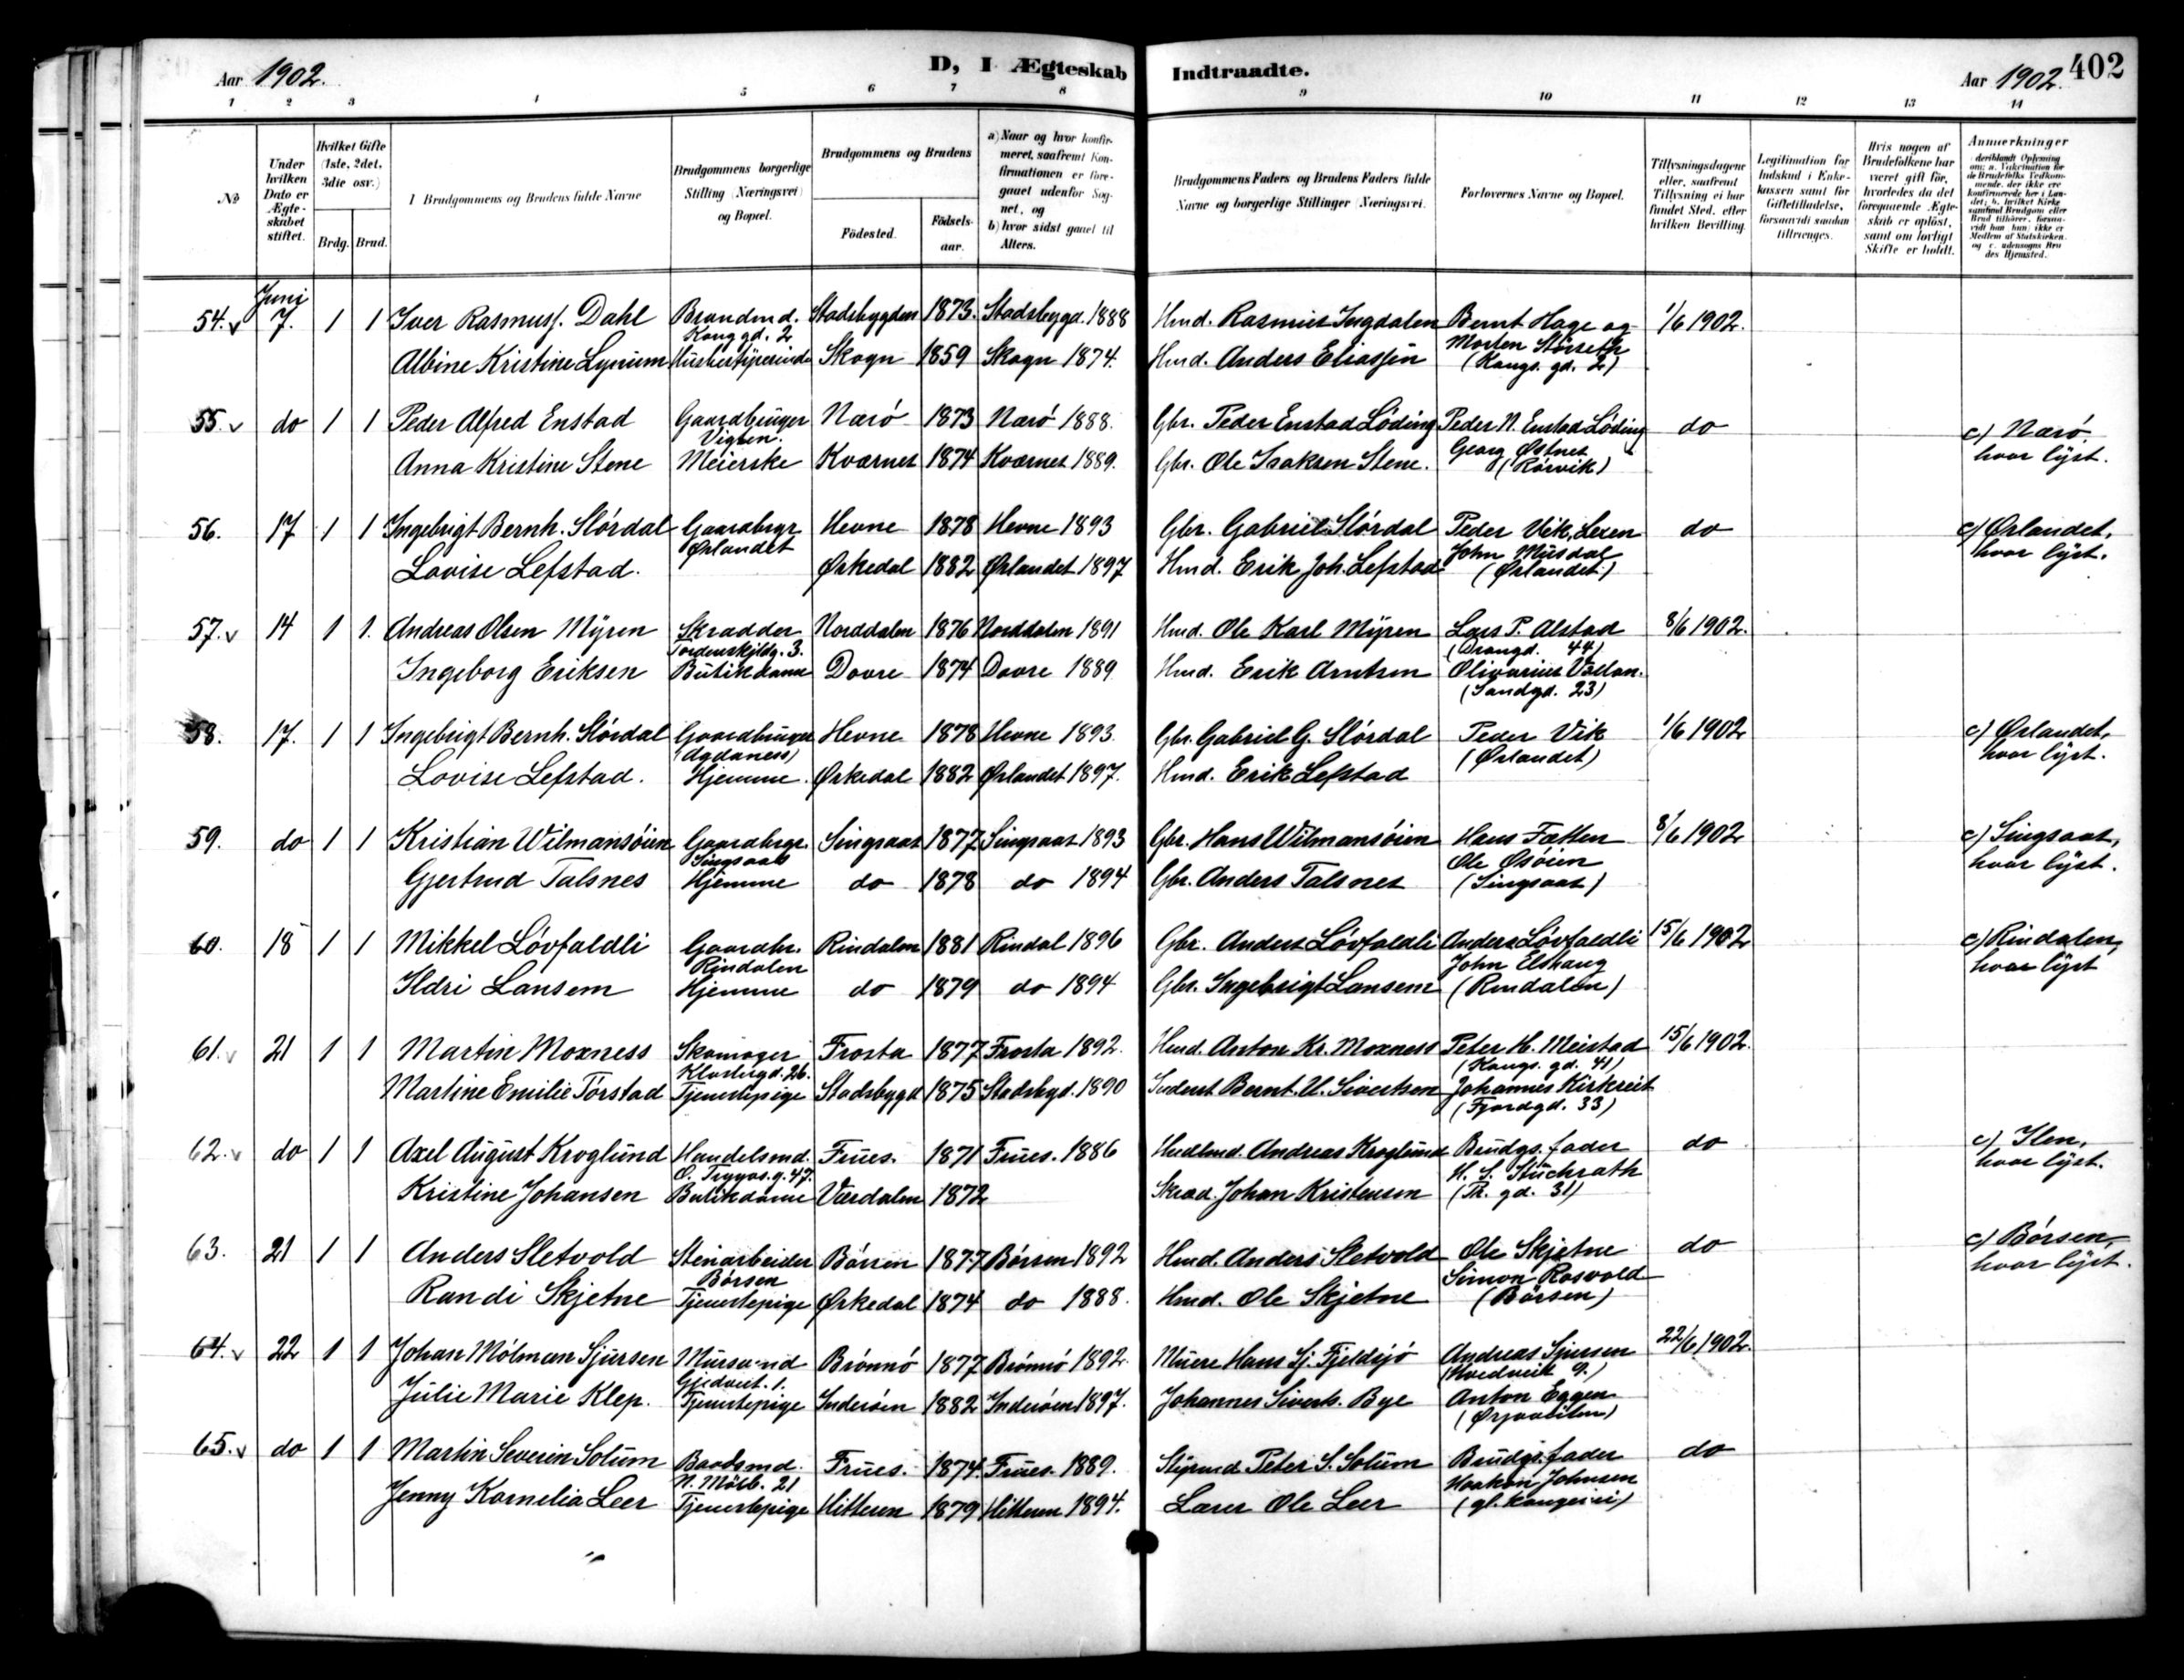 Aar 1902.
D, I Ægteskab Indtraadte.
Aar 1902. 402
1 2 3 4 5 6 7 8 9 10 11 12 13 14
No
Under hvilken Dato er Ægteskabet stiftet.
Hvilket Gifte (1ste, 2det, 3die osv.)
Brdg. Brud.
Brudgommens og Brudens fulde Navne
Brudgommens borgerlige Stilling (Næringsvei) og Bopæl.
Brudgommens og Brudens
Födested. Födselsaar.
a) Naar og hvor konfirmeret, saafremt Konfirmationen er foregaaet udenfor Sognet, og
b) hvor sidst gaaet til Alters.
Brudgommens Faders og Brudens Faders fulde Navne og borgerlige Stillinger (Næringsvei.
Forlovernes Navne og Bopæl.
Tillysningsdagene eller, saafremt Tillysning ei har fundet Sted, efter hvilken Bevilling.
Legitimation for Indskud i Enkekassen samt for Giftetilladelse, forsaavidt saadan tiltrænges.
Hvis nogen af Brudefolkene har været gift för, hvorledes da det foregaaende Ægteskab er oplöst, samt om lovligt Skifte er holdt.
Anmerkninger
Juni
54. v 7. 1 1 Iver Rasmuss. Dahl Brandmd. Stadsbygden 1873. Stadsbygd. 1888 Hmd. Rasmus Ingdalen Bernt Hage og 1/6 1902.
Kong gd. 2 Morten Störseth
Albine Kristine Lynum Husbestyrerinde Skogn 1859 Skogn 1874. Hmd. Anders Eliassen (Kongs. gd. 2)
55. v do 1 1 Peder Alfred Enstad Gaardbruger Nærö 1873 Nærö 1888. Gbr. Peder Enstad Löding Peder N. Enstad Löding do c) Nærö,
Vigten. Georg Østnes hvor lyst.
Anna Kristine Stene Meierske Kværnes 1874 Kværnes 1889. Gbr. Ole Isaksen Stene. (Rörvik)
56. 17 1 1 Ingebrigt Bernh. Slördal Gaardbrgr Hevne 1878 Hevne 1893 Gbr. Gabriel Slördal Peder Vik, Lexen do c) Ørlandet,
Ørlandet John Musdal hvor lyst.
Lovise Lefstad. Ørkedal 1882 Ørlandet 1897 Hmd. Erik Joh. Lefstad (Ørlandet)
57. v 14 1 1. Andreas Olsen Myren Skrædder Norddalen 1876 Norddalen 1891 Hmd. Ole Karl Myren Lars P. Alstad 8/6 1902.
Tordenskjldg. 3. 44)
Ingeborg Eriksen Butikdame Dovre 1874 Dovre 1889 Hmd. Erik Arntsen Olivarius Vollan.
(Sandgd. 23)
58. 17. 1 1 Ingebrigt Bernh. Slördal Gaardbruger Hevne 1878 Hevne 1893. Gbr. Gabriel G. Slördal Peder Vik 1/6 1902 c) Ørlandet,
(Agdaness) (Ørlandet) hvor lyst.
Lovise Lefstad. Hjemme. Ørkedal 1882 Ørlandet 1897. Hmd. Erik Lefstad
59. do 1 1 Kristian Wilmansöien Gaardbrgr. Singsaas 1877 Singsaas 1893 Gbr. Hans Wilmansöien Hans Fætten 8/6 1902 c) Singsaas,
Singsaas Ole Øsöien hvor lyst.
Gjertrud Talsnes Hjemme do 1878 do 1894 Gbr. Anders Talsnes (Singsaas)
60. 18 1 1 Mikkel Lövfaldli Gaardbr. Rindalen 1881 Rindal 1896 Gbr. Anders Lövfaldli Anders Lövfaldli 15/6 1902 c) Rindalen,
Rindalen John Elshaug hvor lyst
Ildri Lansem Hjemme do 1879 do 1894 Gbr. Ingebrigt Lansem (Rindalen)
61. v 21 1 1 Martin Moxness Skomager Frosta 1877 Frosta 1892. Hmd. Anton Kr. Moxness Peter H. Meistad 15/6 1902.
Klostergd. 26. (Kongs. gd. 41)
Martine Emilie Törstad Tjenestepige Stadsbygd 1875 Stadsbyd. 1890 Bernt U. Sivertsen Johannes Kirkreit
(Fjordgd. 33)
62. v do 1 1 Axel August Kroglund Handelsmd. Frues. 1871 Frues. 1886 Andreas Kroglund Brudgs. fader do c) Ilen,
O. Trygvas. g. 47. H. S. Stuchrath hvor lyst.
Kristine Johansen Butikdame Værdalen 1872 Skræd. Johan Kristensen (Th. gd. 31)
63. 21 1 1 Anders Sletvold Stenarbeider Börsen 1877 Börsen 1892 Hmd. Anders Sletvold Ole Skjetne do c) Börsen,
Börsen Simon Rosvold hvor lyst.
Randi Skjetne Tjenestepige Ørkedal 1874 do 1888. Hmd. Ole Skjetne (Börsen)
64. v 22 1 1 Johan Mölman Sjursen Mursvend Brönnö 1877 Brönnö 1892. Murer Hans Sj. Fjeldsjö Andreas Sjursen 22/6 1902.
Gjedvest. 1.
Julie Marie Klep. Tjenestepige Inderöen 1882 Inderöen 1897. Johannes Siverts. Bye Anton Eggen
65. v do 1 1 Martin Severin Solum Baadsmd. Frues. 1874. Frues. 1889. Styrmd Peter S. Solum Brudgs. fader do
N. Mölb. 21 Haakon Johnsen
Jenny Kornelia Leer Tjenestepige Hitteren 1879 Hitteren 1894. Lærer Ole Leer